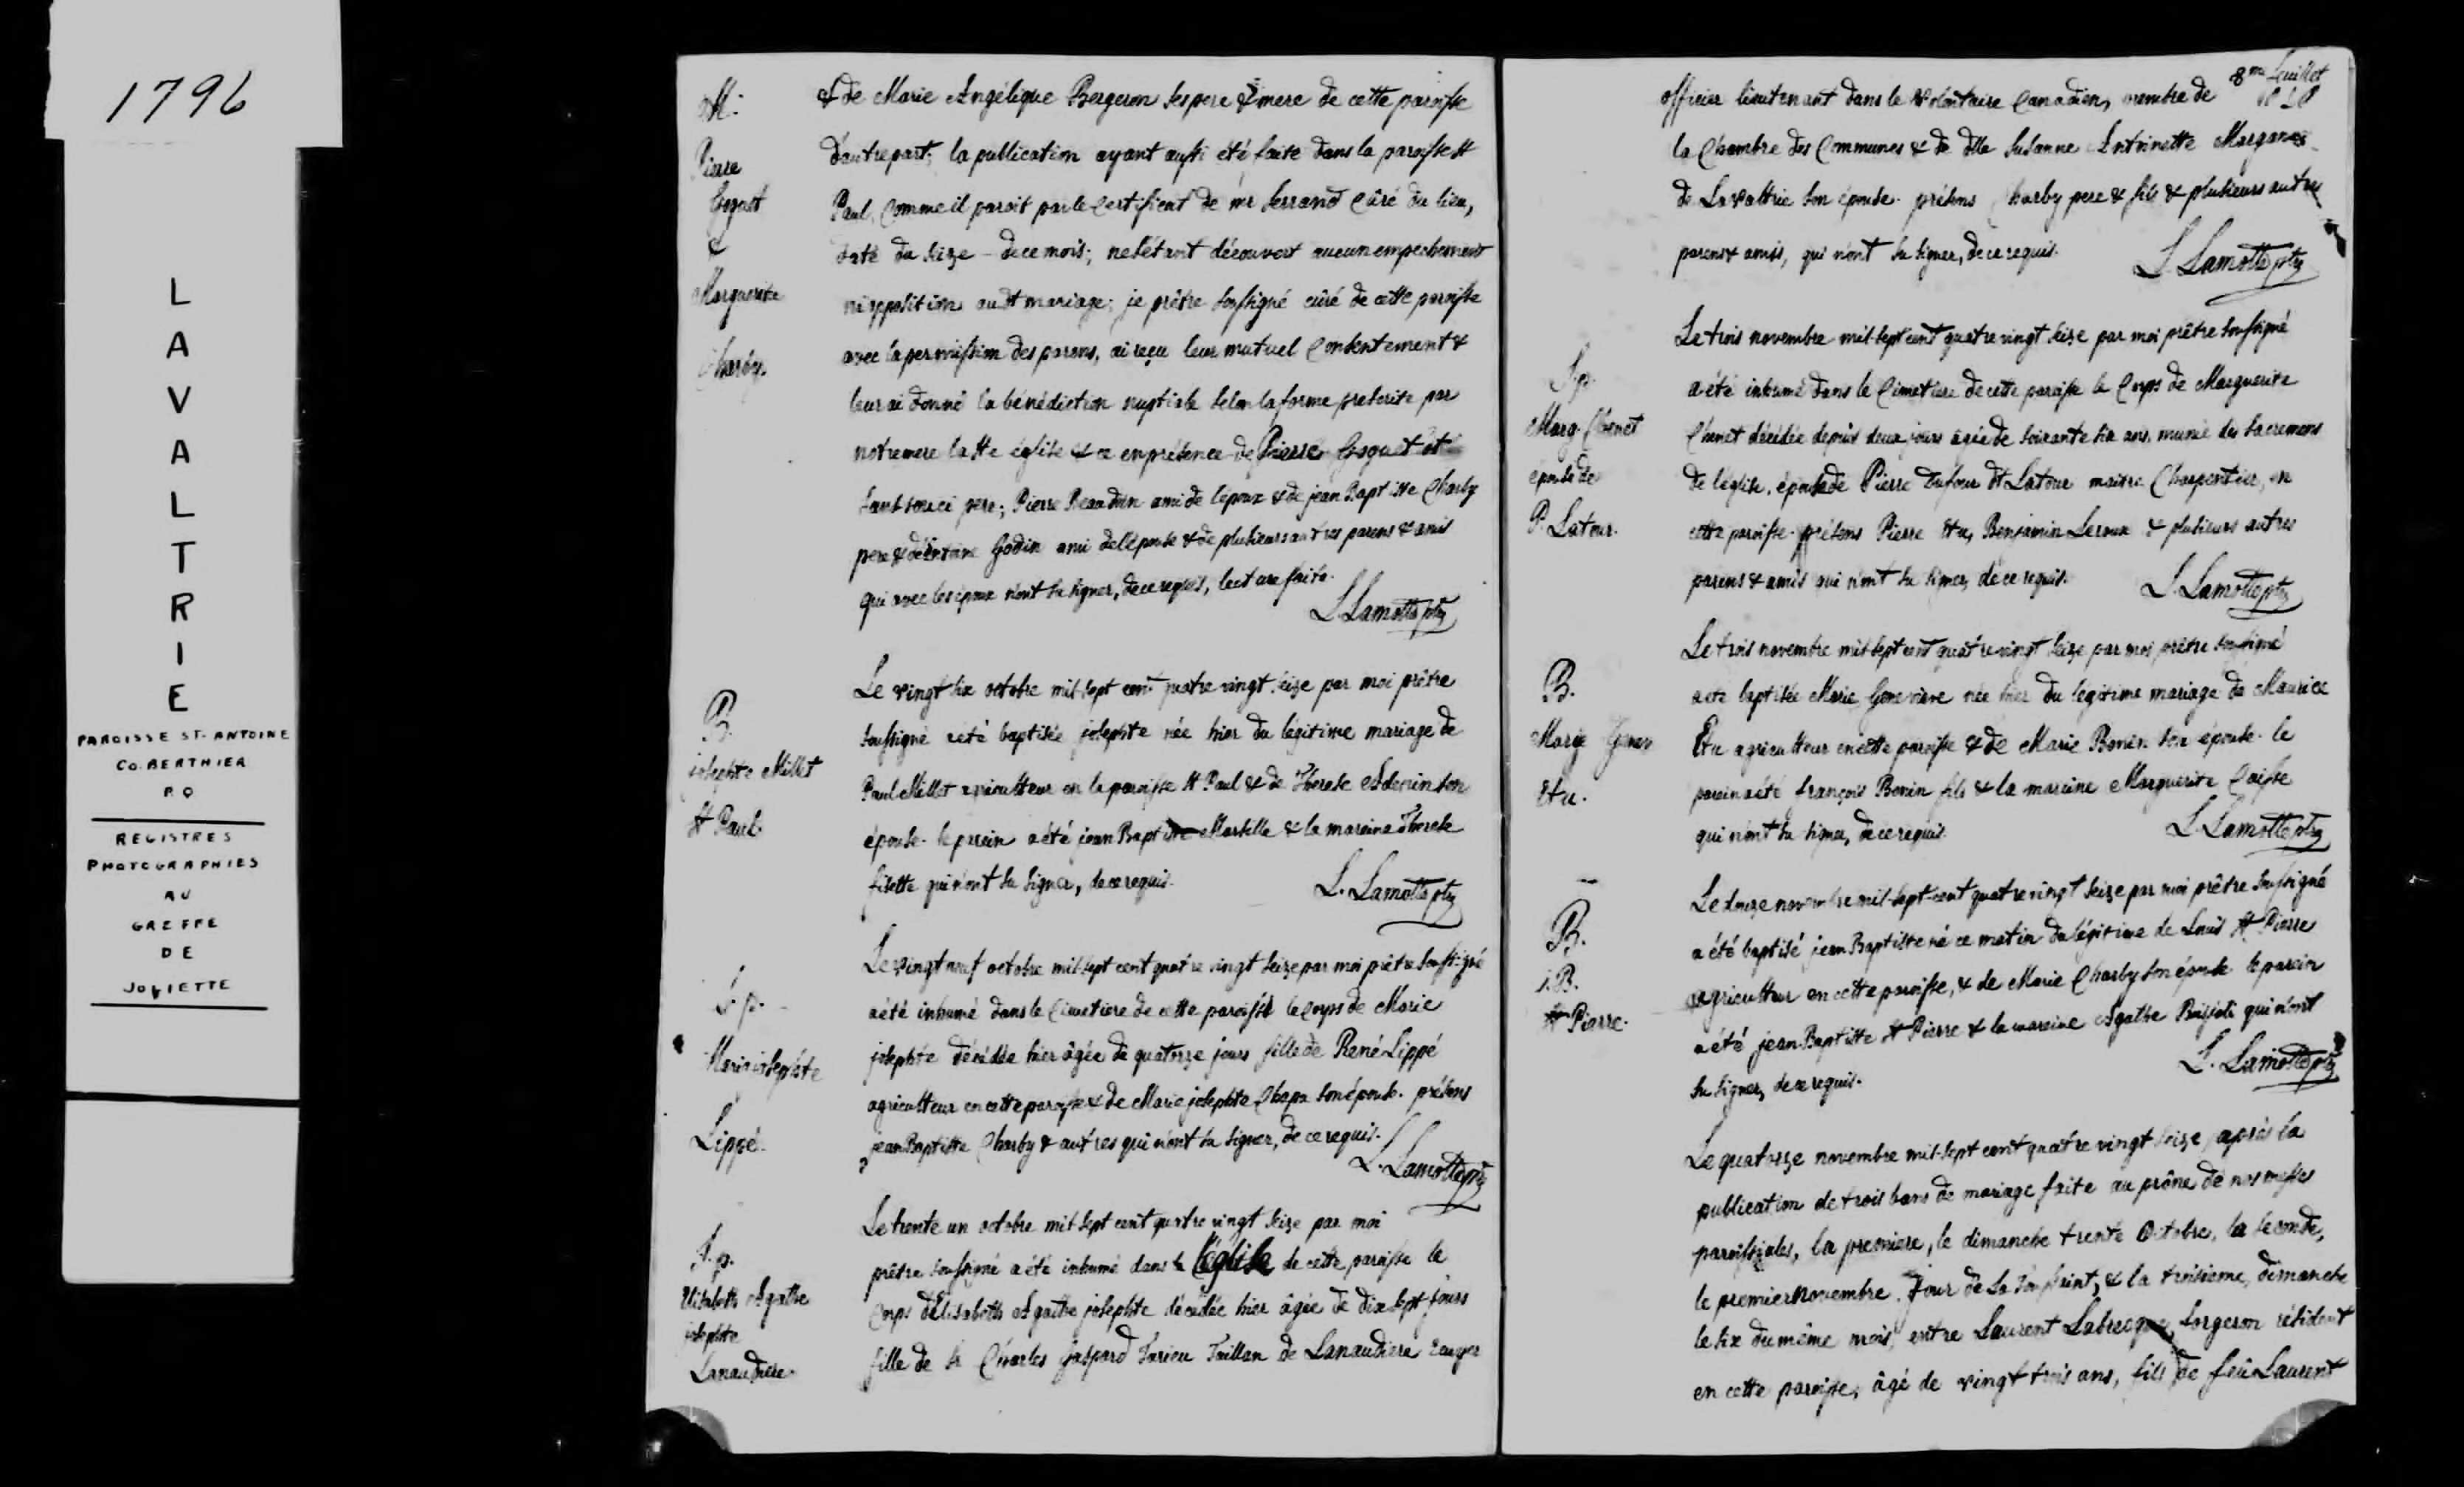 1796
LAVALTRIE
PAROISSE ST. ANTOINE
CO. BERTHIER
P.Q
REGISTRES
PHOTOGRAPHIES
AU
GREFFE
DE
JOLIETTE
M.
Pierre
&
Marguerite
Charby.
& de Marie Angélique Bergeron ses pere & mere de cette paroisse
d'autre part; la publication ayant aussi été faite dans la paroisse St
Paul, comme il paroit par le certificat de mr Ferrand Curé du lieu,
daté du seize de ce mois; ne s'étant découvert aucun empechement
ni opposition au dt mariage; je prêtre soussigné curé de cette paroisse
avec la permission des parens, ai reçu leur mutuel Consentement &
leur ai donné la bénédiction nuptiale selon la forme prescrite par
notre mere la Ste église & ce en présence de Pierre dt
Sanssouci pere; Pierre Beaudin ami de l'époux & de jean Baptiste Charby
pere & d'Antoine Godin ami de l'épouse & de plusieurs autres parens & amis
qui avec les époux n'ont su signer, de ce requis, lecture faite.
L. Lamotte ptre
B.
josephte Millet
St Paul.
Le vingt six octobre mil-sept cent quatre vingt seize par moi prêtre
soussigné a été baptisée josephte née hier du légitime mariage de
Paul Millet agriculteur en la paroisse St Paul & de Therese son
épouse. le parain a été jean Baptiste & la maraine Therese
qui n'ont su signer, de ce requis.
L. Lamotte ptre
S.p.
Marie josephte
Lippé.
Le vingt neuf octobre mil-sept cent quatre vingt seize par moi prêtre soussigné
a été inhumé dans le Cimetiere de cette paroisse le corps de Marie
josephte décédée hier âgée de quatorze jours fille de René Lippé
agriculteur en cette paroisse & de Marie josephte son épouse. présens
jean Baptiste Charby & autres qui n'ont su signer, de ce requis.
L. Lamotte ptre
S.p.
Elisabeth Agathe
josephte
Lanaudiere.
Le trente un octobre mil-sept cent quatre vingt seize par moi
prêtre soussigné a été inhumé dans l'église de cette paroisse le
Corps d'Elisabeth Agathe josephte décédée hier âgée de dix sept jours
fille de Sr Charles Gaspard Tarieu Taillan de Lanaudiere
8me feuillet
officier lieutenant dans le Volontaire Canadien, membre de
la Chambre des Communes & de dlle Susanne Antoinette Margane
de Lavaltrie son épouse. présens Charby pere & fils & plusieurs autres
parens & amis, qui n'ont su signer, de ce requis.
L. Lamotte ptre
S.p.
Marg. Chenet
épouse de
P. Latour.
Le trois novembre mil-sept cent quatre vingt seize par moi prêtre soussigné
a été inhumé dans le Cimetiere de cette paroisse le Corps de Marguerite
Chenet décédée depuis deux jours âgée de soixante six ans, munie des sacremens
de l'église, épouse de Pierre Dufour dt Latour maître Charpentier, en
cette paroisse. présens Pierre Etu, Benjamin Leroux & plusieurs autres
parens & amis qui n'ont su signer, de ce requis.
L. Lamotte ptre
B.
Marie Genev
Etu.
Le trois novembre mil-sept cent quatre vingt seize par moi prêtre soussigné
a été baptisée Marie Genevieve née hier du légitime mariage de Maurice
Etu agriculteur en cette paroisse & de Marie Bonin son épouse. le
parain a été françois Bonin fils & la maraine Marguerite
qui n'ont su signer, de ce requis.
L. Lamotte ptre
B.
j.B.
St Pierre.
Le douze novembre mil-sept-cent quatre vingt seize par moi prêtre soussigné
a été baptisé jean Baptiste né ce matin du légitime de Louis St Pierre
agriculteur en cette paroisse, & de Marie Charby son épouse le parain
a été jean Baptiste St Pierre & la maraine Agathe qui n'ont
su signer, de ce requis.
L. Lamotte ptre
Le quatorze novembre mil-sept cent quatre vingt seize, après la
publication de trois bans de mariage faite au prône de nos messes
paroissiales, la premiere, le dimanche trente Octobre, la seconde,
le premier novembre, Jour de la Toussaint, & la troisieme, dimanche
le six du même mois, entre Laurent Labrecque, forgeron résident
en cette paroisse, âgé de vingt trois ans, fils de feû Laurent